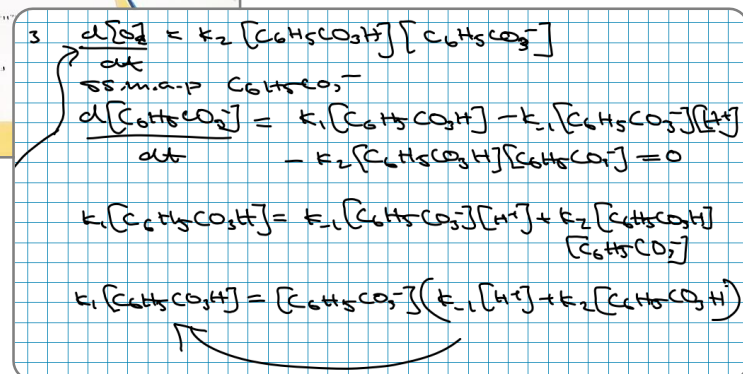 3 d[O2] = k2 [C6H5CO3H][C6H5CO3-]
dt
ss.m.a-p C6H5CO3-
d[C6H5CO3-] = k1[C6H5CO3H] - k-1[C6H5CO3-][H+]
dt - k2[C6H5CO3H][C6H5CO3-] = 0
k1[C6H5CO3H] = k-1[C6H5CO3-][H+] + k2[C6H5CO3H]
[C6H5CO3-]
k1[C6H5CO3H] = [C6H5CO3-](k-1[H+] + k2[C6H5CO3H])